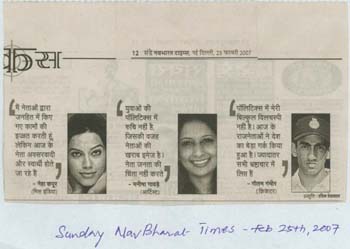 क्स
12 संडे नवभारत टाइम्स, नई दिल्ली, 25 फरवरी 2007
मैं नेताओं द्वारा
जनहित में किए
गए कामों की
इज्जत करती हूं,
लेकिन आज के
नेता अवसरवादी
और स्वार्थी होते
जा रहे हैं
- नेहा कपूर
(मिस इंडिया)
युवाओं की
पॉलिटिक्स में
रुचि नहीं है,
जिसकी वजह
नेताओं की
खराब इमेज है।
नेता जनता की
चिंता नहीं करते
- मनीषा गावड़े
(आर्टिस्ट)
पॉलिटिक्स में मेरी
बिल्कुल दिलचस्पी
नहीं है। आज के
राजनेताओं ने देश
का बेड़ा गर्क किया
हुआ है। ज्यादातर
सभी भ्रष्टाचार में
लिप्त हैं
- गौतम गंभीर
(क्रिकेटर)
प्रस्तुति :
Sunday NavBharat Times - Feb 25th, 2007